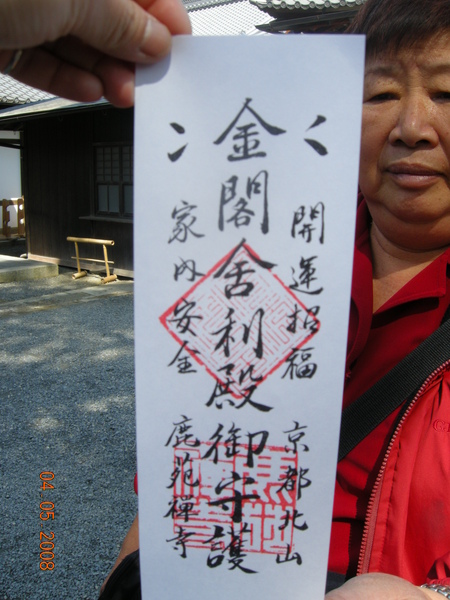 開運招福 京都北山
金閣舎利殿御守護
家内安全 鹿苑禅寺
04.05.2008